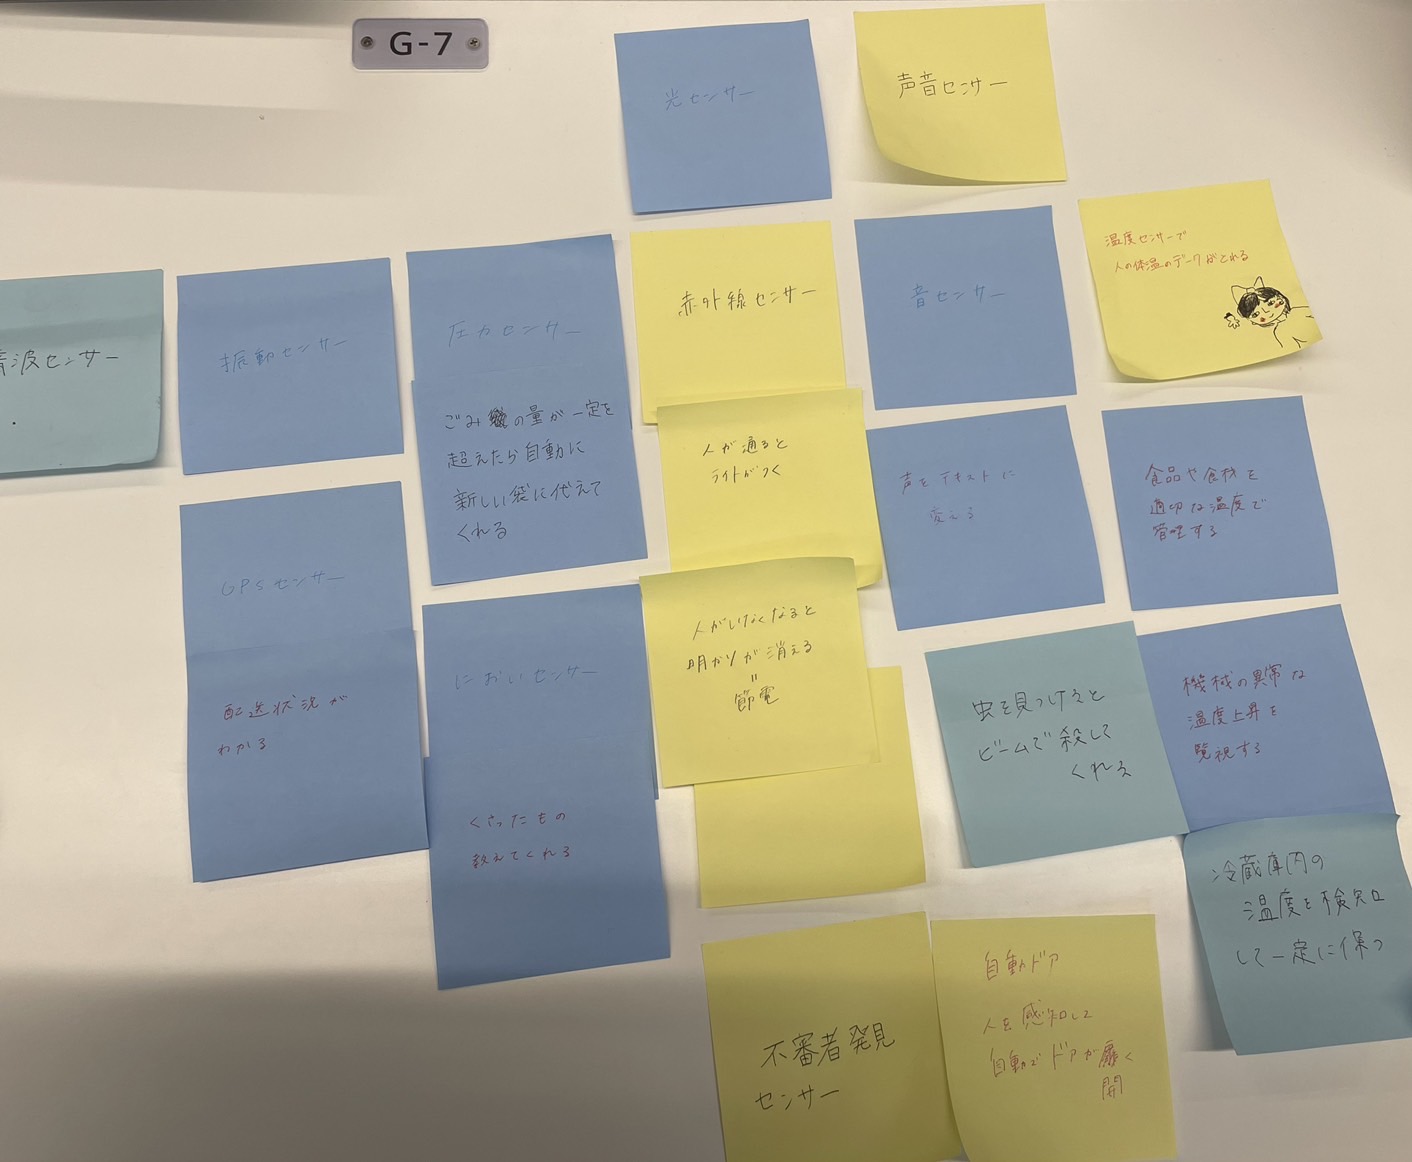 G-7
光センサー
声音センサー
音波センサー
振動センサー
圧力センサー
ごみの量が一定を
超えたら自動に
新しい袋に代えて
くれる
赤外線センサー
人が通ると
ライトがつく
人がいなくなると
明かりが消える
=
節電
音センサー
声をテキストに
変える
温度センサーで
人の体温のデータがとれる
食品や食材を
適切な温度で
管理する
GPSセンサー
配送状況が
わかる
においセンサー
くさったもの
教えてくれる
虫を見つけると
ビームで殺して
くれる
機械の異常な
温度上昇を
監視する
冷蔵庫内の
温度を検知
して一定に保つ
不審者発見
センサー
自動ドア
人を感知して
自動でドアが開く